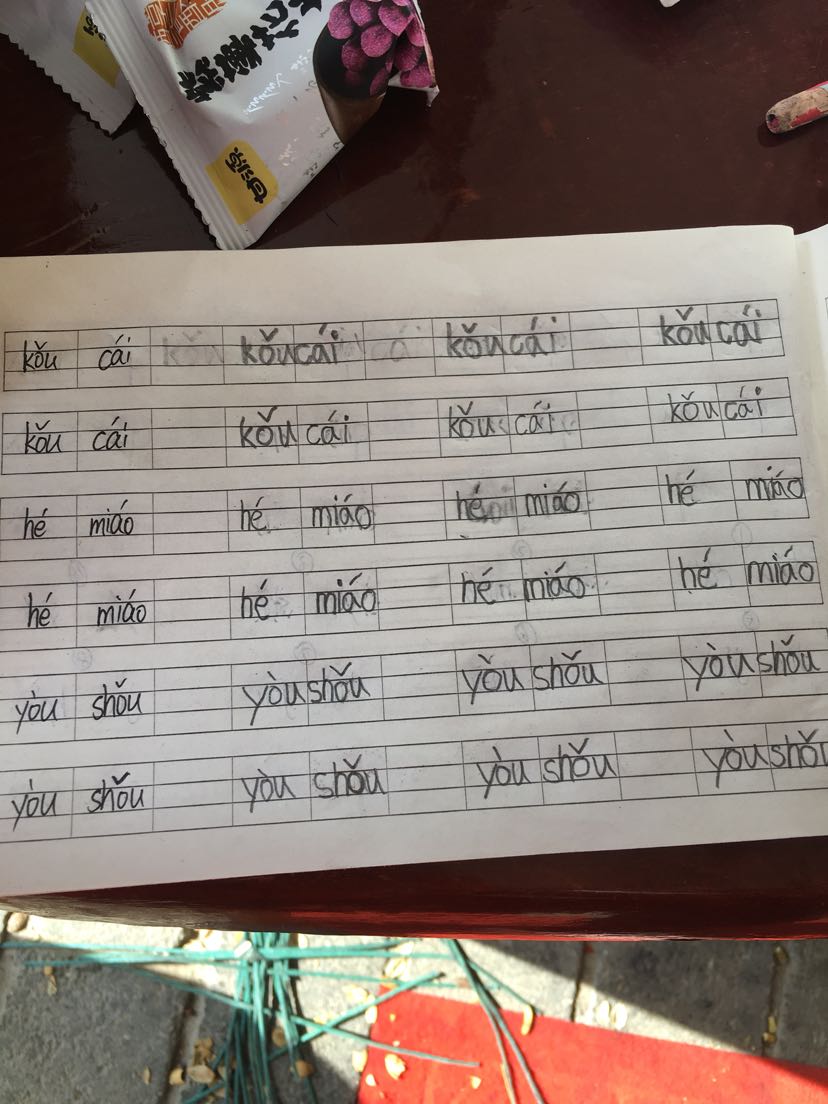 甘源
kǒu cái kǒu cái kǒu cái kǒu cái
kǒu cái kǒu cái kǒu cái kǒu cái
hé miáo hé miáo hé miáo hé miáo
hé miáo hé miáo hé miáo hé miáo
yòu shǒu yòu shǒu yòu shǒu yòu shǒu
yòu shǒu yòu shǒu yòu shǒu yòu shǒu